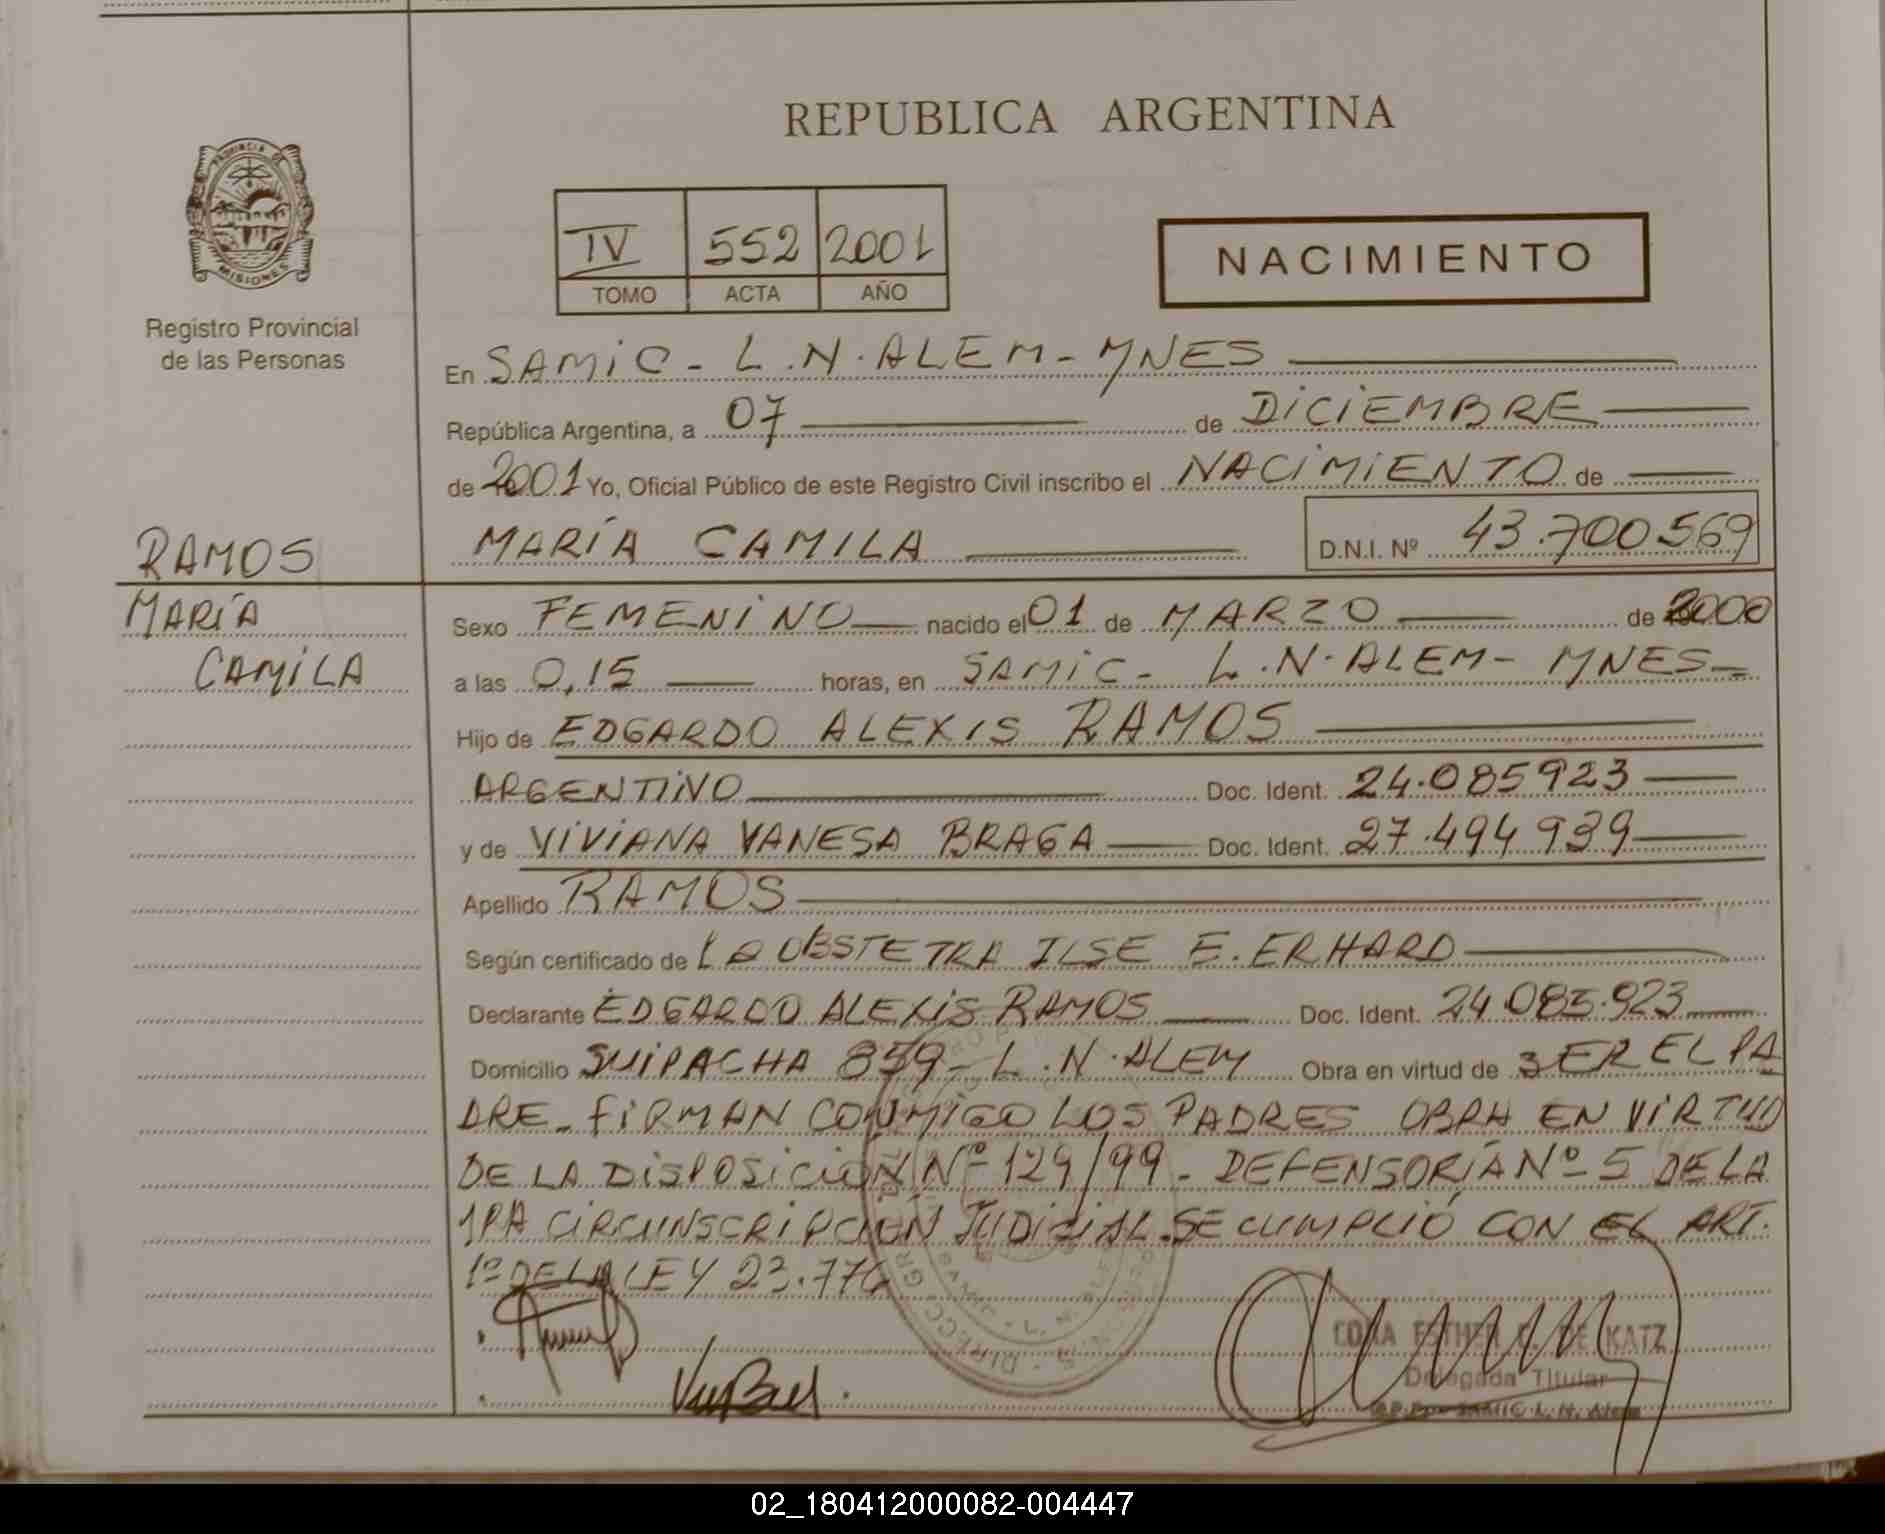 REPUBLICA ARGENTINA
PROVINCIA DE
MISIONES
Registro Provincial
de las Personas
IV 552 2001
TOMO ACTA AÑO
NACIMIENTO
En SAMIC - L.N. ALEM - MNES
República Argentina, a 07 de DICIEMBRE
de 2001 Yo, Oficial Público de este Registro Civil inscribo el NACIMIENTO de
MARÍA CAMILA D.N.I. Nº 43.700569
RAMOS
MARÍA
CAMILA
Sexo FEMENINO nacido el 01 de MARZO de 2000
a las 0,15 horas, en SAMIC - L.N. ALEM - MNES
Hijo de EDGARDO ALEXIS RAMOS
ARGENTINO Doc. Ident. 24.085923
y de VIVIANA VANESA BRAGA Doc. Ident. 27.494939
Apellido RAMOS
Según certificado de LA OBSTETRA ILSE E. ERHARD
Declarante EDGARDO ALEXIS RAMOS Doc. Ident. 24.085.923
Domicilio SUIPACHA 859 - L.N. ALEM Obra en virtud de SER EL PA
DRE - FIRMAN CONMIGO LOS PADRES OBRA EN VIRTUD
DE LA DISPOSICION Nº 129/99 - DEFENSORÍA Nº 5 DE LA
1RA CIRCUNSCRIPCION JUDICIAL. SE CUMPLIÓ CON EL ART.
1º DE LA LEY 23.776
CORA ESTHER DE KATZ
Delegada Titular
SAMIC L. N. Alem
02_180412000082-004447